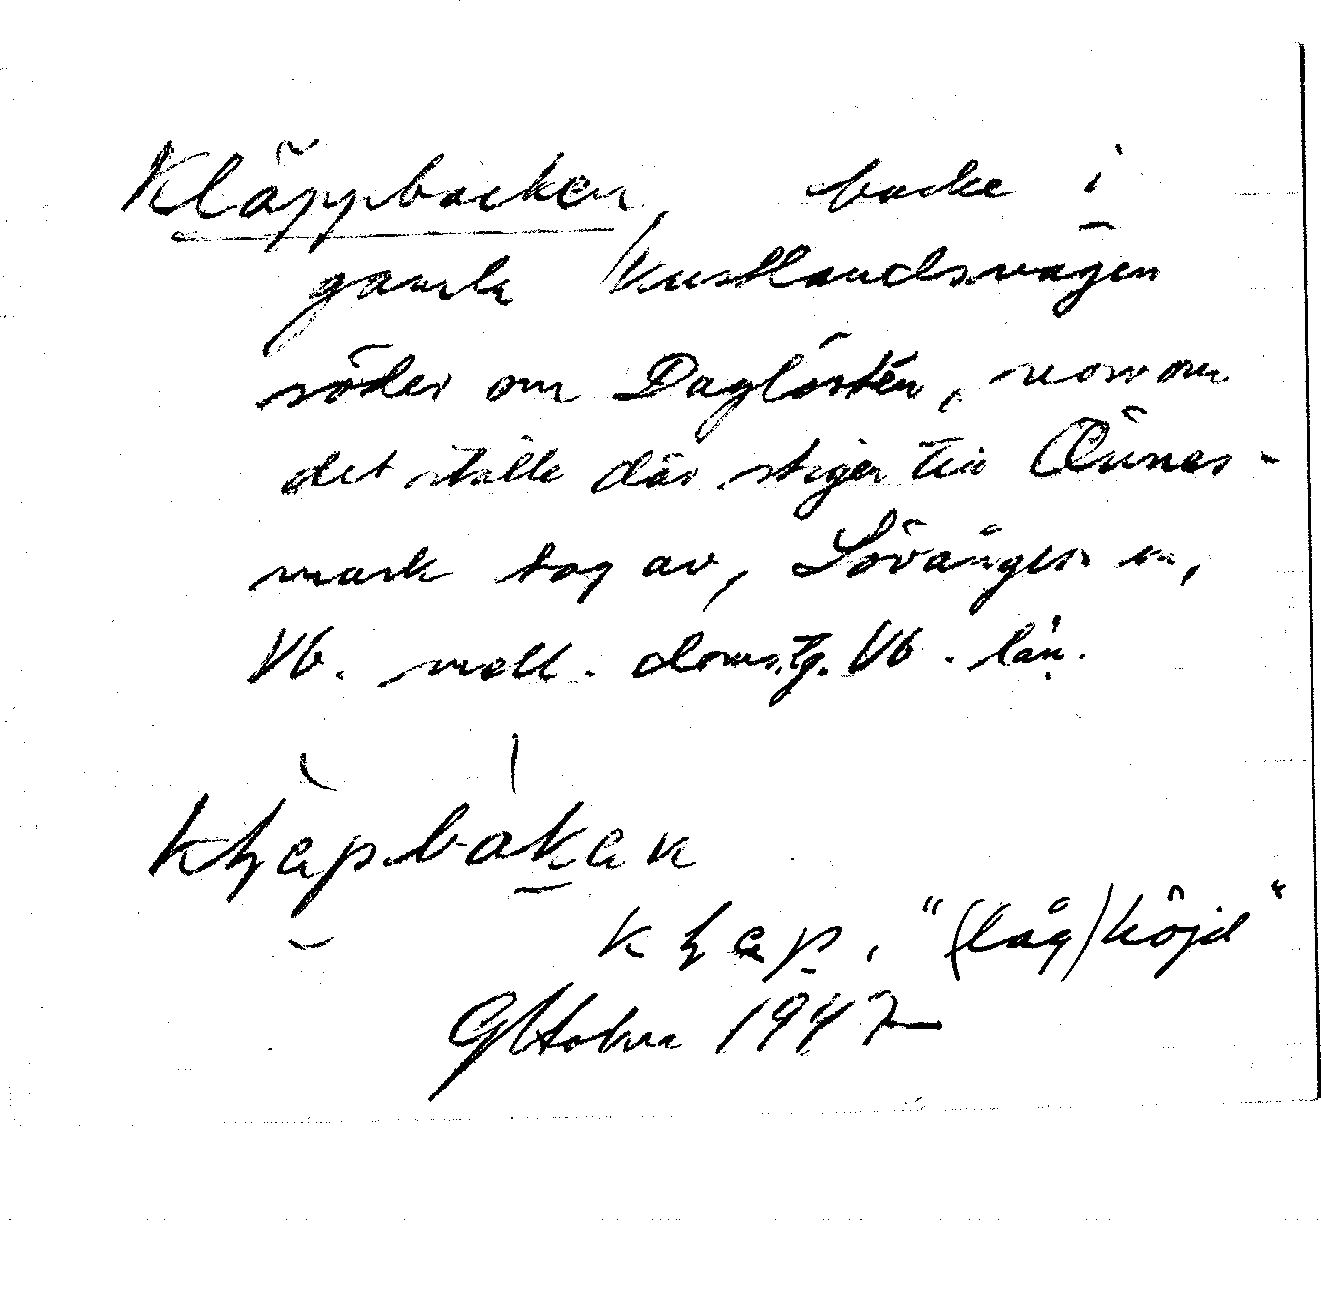 Kläppbacken, backe i
gamla Kustlandsvägen
söder om Daglösten, norr om
det ställe där stigen till Önnes-
mark tog av, Lövångers sn,
Vb. mell. doms.tg. Vb. län.
kḷäpbakan
kḷäp, "(låg) höjd"
1947